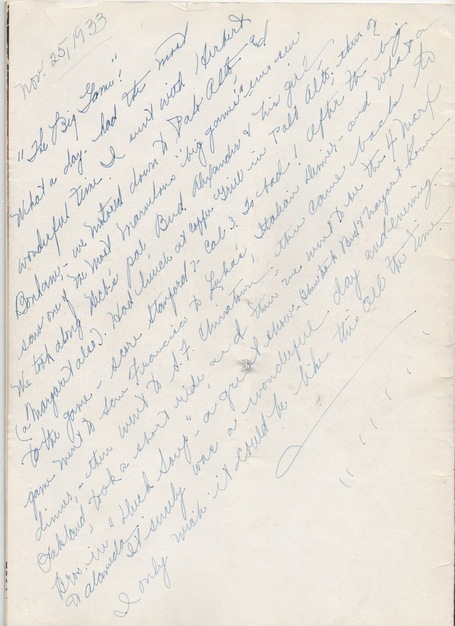 Nov. 25, 1933
"The Big Game"!
What a day - had the most
wonderful time. I went with Herbert
we motored down to Palo Alto and
saw one of the most marvelous "big games" ever seen
We took along Herb's pal Bud Alexander & his girl
(a Margaret also). Had lunch at coffee Grill in Palo Alto, thus
to the game - score Stanford 7 - Cal 3. Too bad! After the big
game went to San Francisco to Lucca's Italian dinner - and what a
dinner, - then went to S.F. Chinatown, then came back to
Oakland, took a short ride, and then we went to see the 4 Marx
Bros. in "Duck Soup" - a great show. Bud & Margaret home
to Alameda. It surely was a wonderful day and evening
I only wish it could be like this all the time.